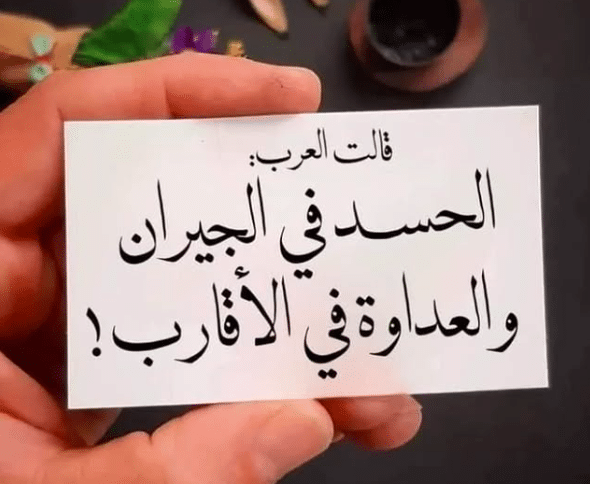 قالت العرب:
الحسد في الجيران
والعداوة في الأقارب!